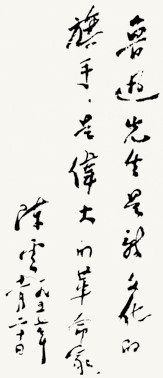 鲁迅先生是新文化的
旗手，是偉大的革命家
陳雲
一九五七年
十一月二十日